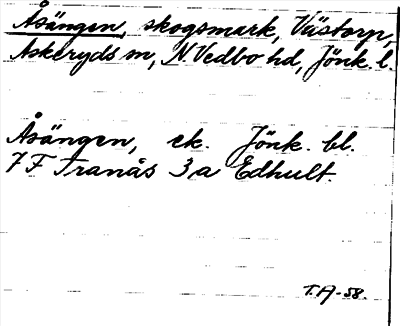 Åsängen, skogsmark, Västorp,
Askeryds sn, N Vedbo hd, Jönk. l.
Åsängen, ek. Jönk. bl.
7 F Tranås 3 a Edhult.
T.A-58.